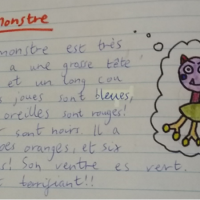 monstre
monstre est très
a une grasse tête
et un long cou
joues sont bleues,
oreilles sont rouges!
sont noirs. Il a
oranges, et sur
Son ventre es vert.
terrifiant!!